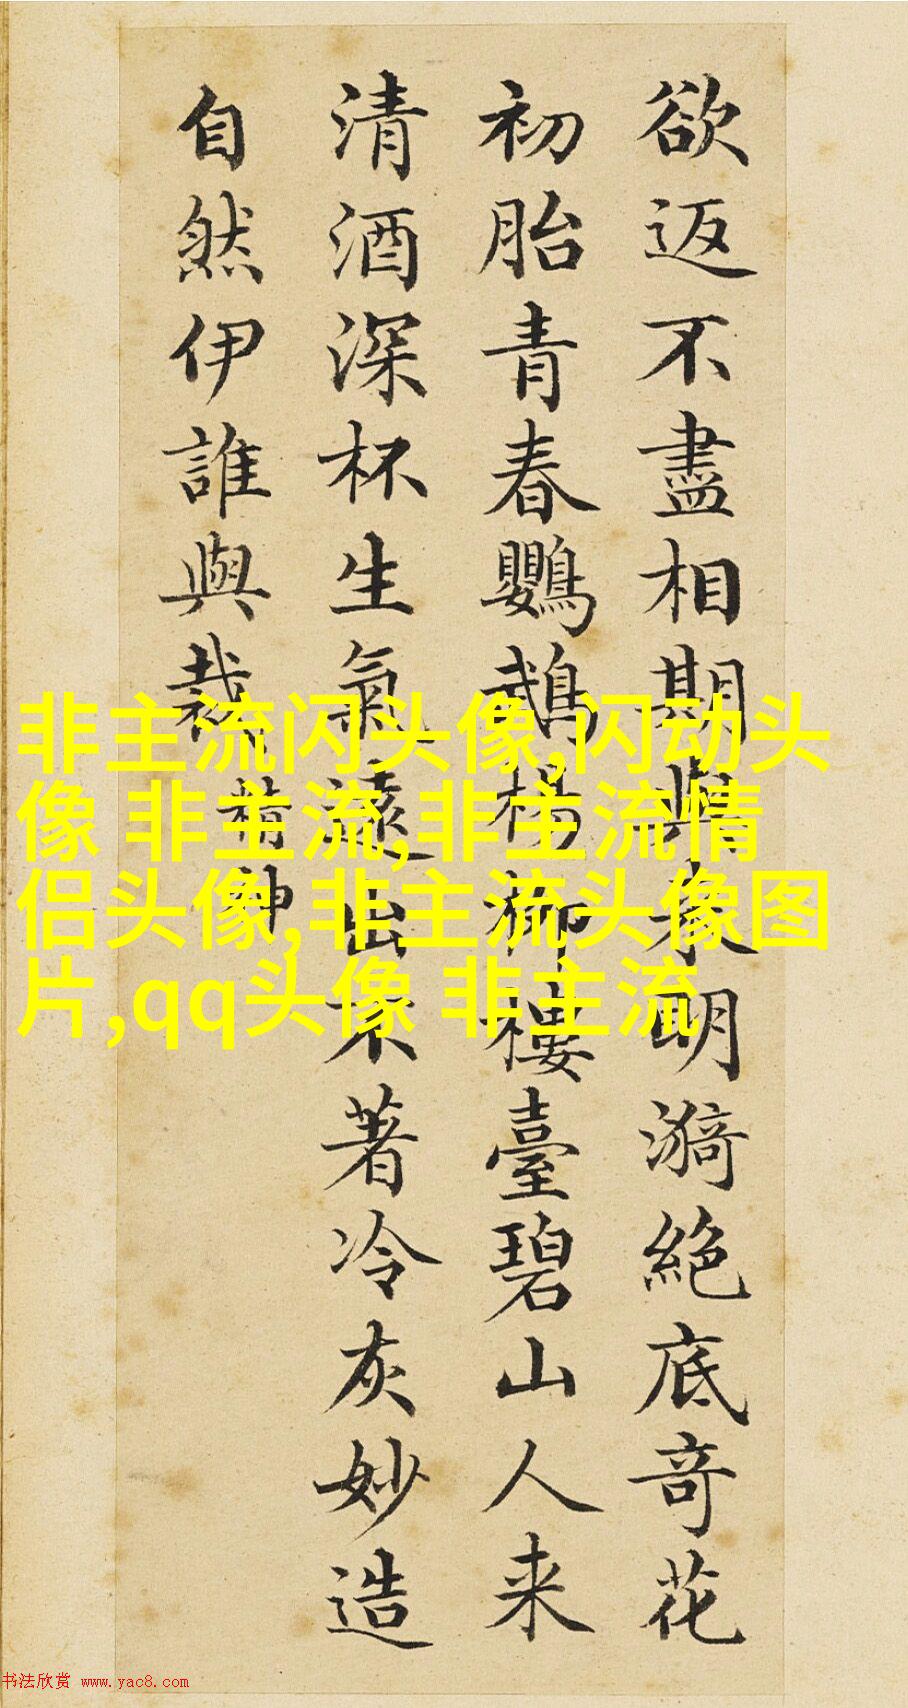 欲返不盡相期與来明漪絶底竒花
初胎青春鸚鵡楊栁樓臺碧山人来
清酒深杯生氣遠出不著冷灰妙造
自然伊誰與裁
精神
非主流闪头像,闪动头
像 非主流,非主流情
侣头像,非主流头像图
片,qq头像 非主流
书法欣赏 www.yac8.com